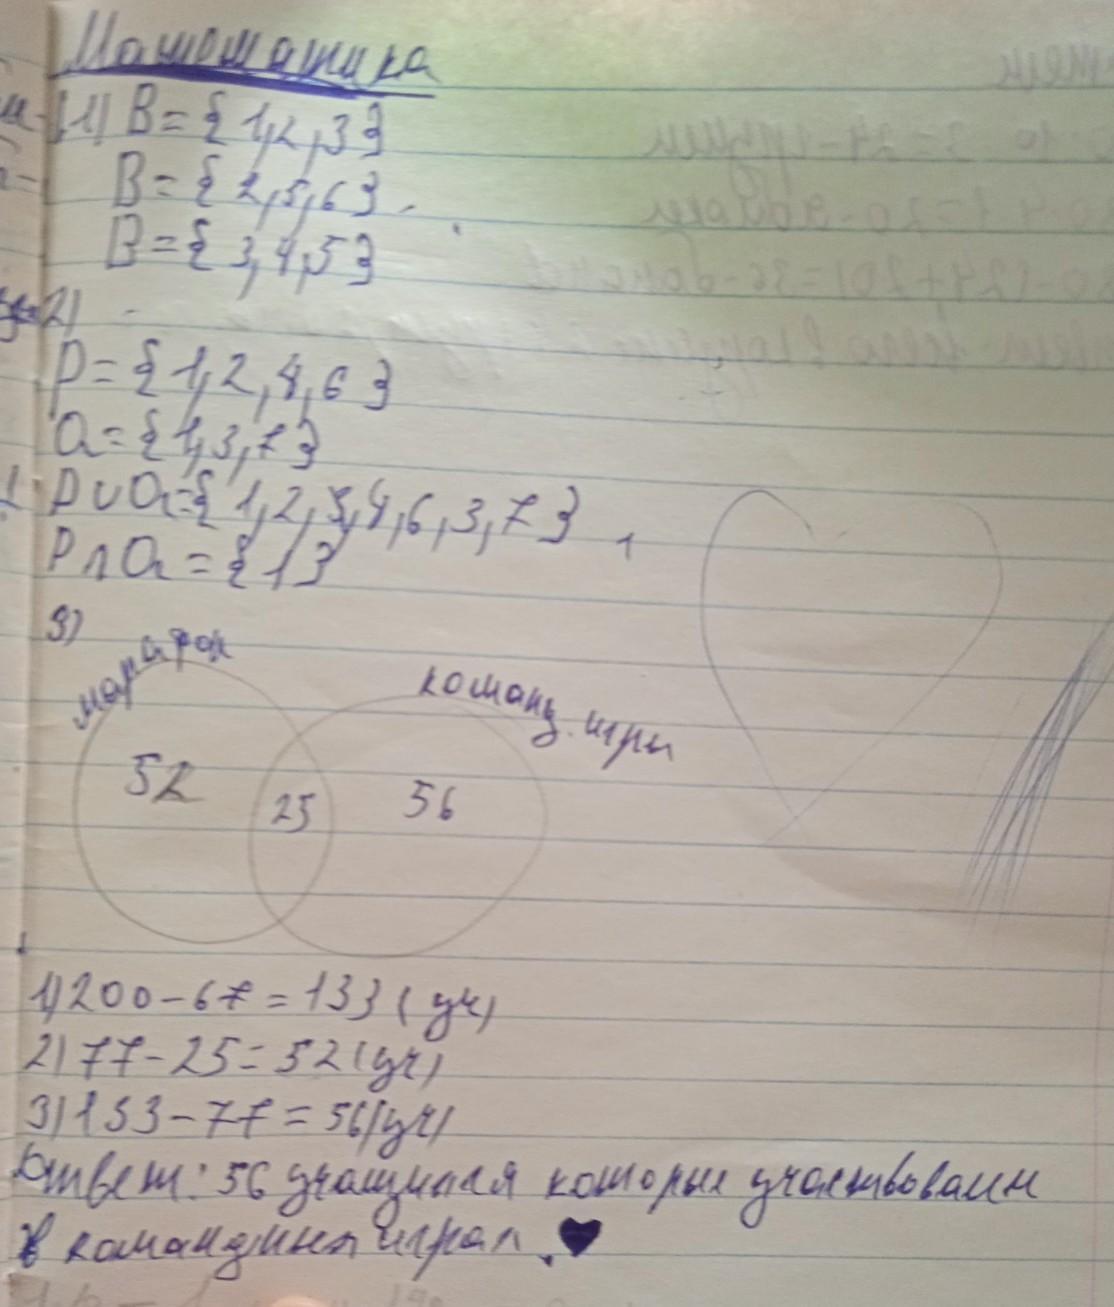 Математика
1) B = {1,2,3}
B = {2,5,6}
B = {3,4,5}
2)
P = {1,2,4,6}
Q = {1,3,7}
P∪Q = {1,2,3,4,6,3,7}
P∩Q = {1}
3)
марафон
команд. игры
52
25
56
1) 200 - 67 = 133 (уч)
2) 77 - 25 = 52 (уч)
3) 133 - 77 = 56 (уч)
Ответ: 56 учащихся которые участвовали
в командных играх.